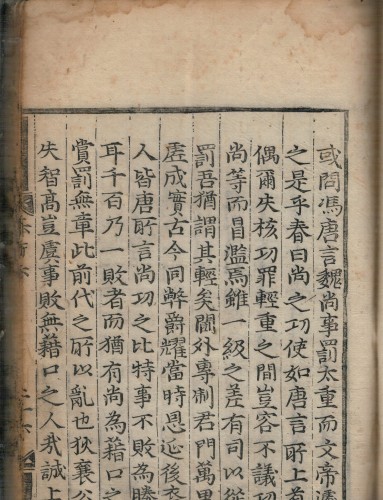 或問馮唐言魏尚事罰太重而文帝
之是乎春曰尚之功使如唐言所上首
偶爾失核功罪輕重之間豈容不議
尚等而冒濫焉雖一級之差有司以
罰吾猶謂其輕矣閫外專制君門萬里
虗成實古今同弊爵耀當時恩延後
人皆唐所言尚功之比特事不敗為
耳千百乃一敗者而猶有尚為藉口之
賞罰無章此前代之所以亂也狄襄公
失智高豈虞事敗無藉口之人哉誠上